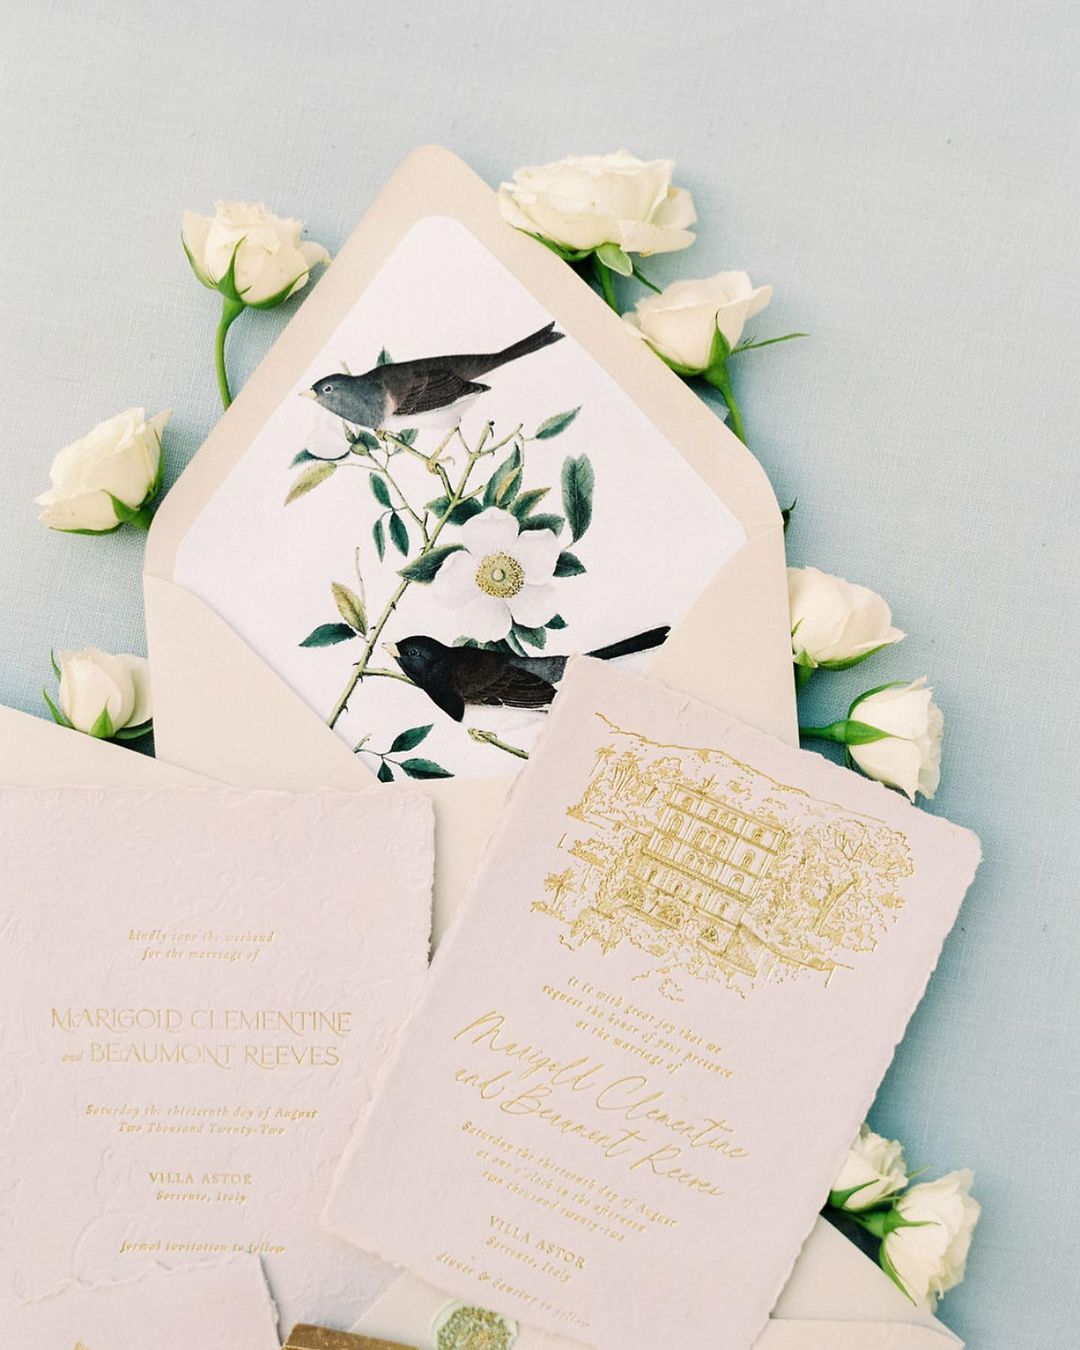 kindly save the weekend
for the marriage of
MARIGOLD CLEMENTINE
and BEAUMONT REEVES
Saturday the thirteenth day of August
Two Thousand Twenty-Two
VILLA ASTOR
Sorrento, Italy
formal invitation to follow
it is with great joy that we
request the honor of your presence
at the marriage of
Marigold Clementine
and Beaumont Reeves
Saturday the thirteenth day of August
at one o'clock in the afternoon
two thousand twenty-two
VILLA ASTOR
Sorrento, Italy
dinner & dancing to follow